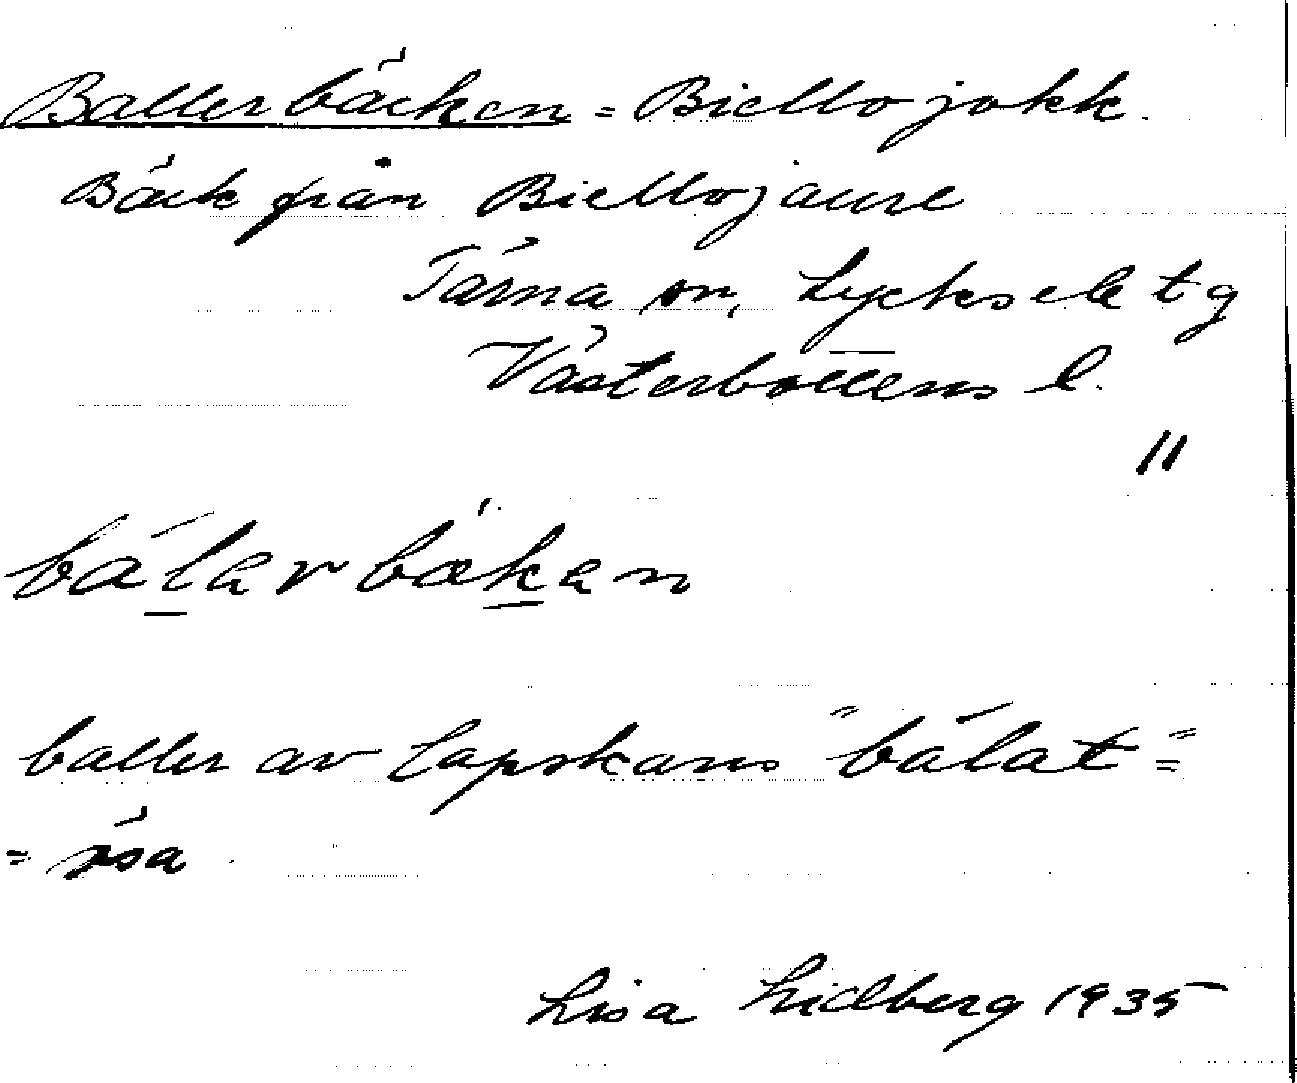 Ballerbäcken = Biellojokk.
Bäck från Biellojaure
Tärna sn, Lycksele tg
Västerbottens l.
"
bálarbækan
baller av lapskans "bálat" =
= äsa
Lisa Lidberg 1935